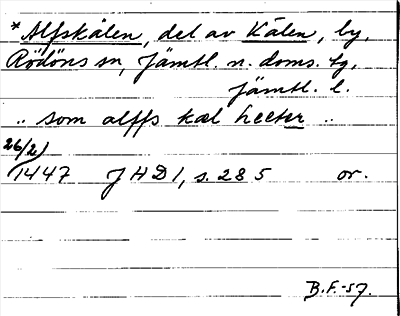 *Alfskålen, del av Kålen, by,
Rödöns sn, Jämtl. n. doms. tg,
Jämtl. l.
.. som alffs kæl heeter ..
26/2
1447 JHD 1, s. 285 or.
B.F.-57.